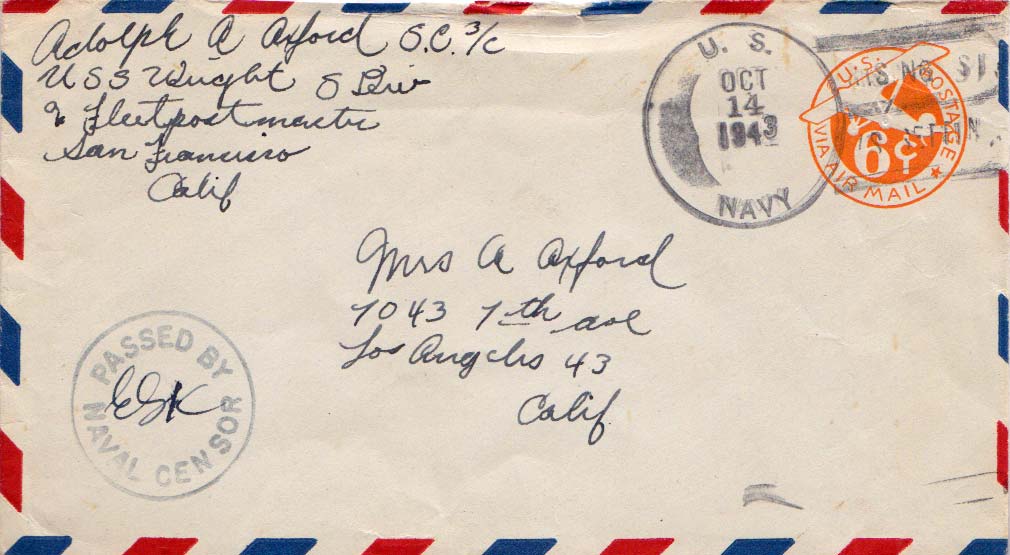 Adolph A Axford S.C. 3/c
USS Wright S Div
℅ Fleetpostmaster
San Francisco
Calif
U. S.
OCT
14
1943
NAVY
U.S. POSTAGE
6¢
VIA AIR MAIL
Mrs A Axford
7043 7th ave
Los Angeles 43
Calif
PASSED BY
ESK
NAVAL CENSOR